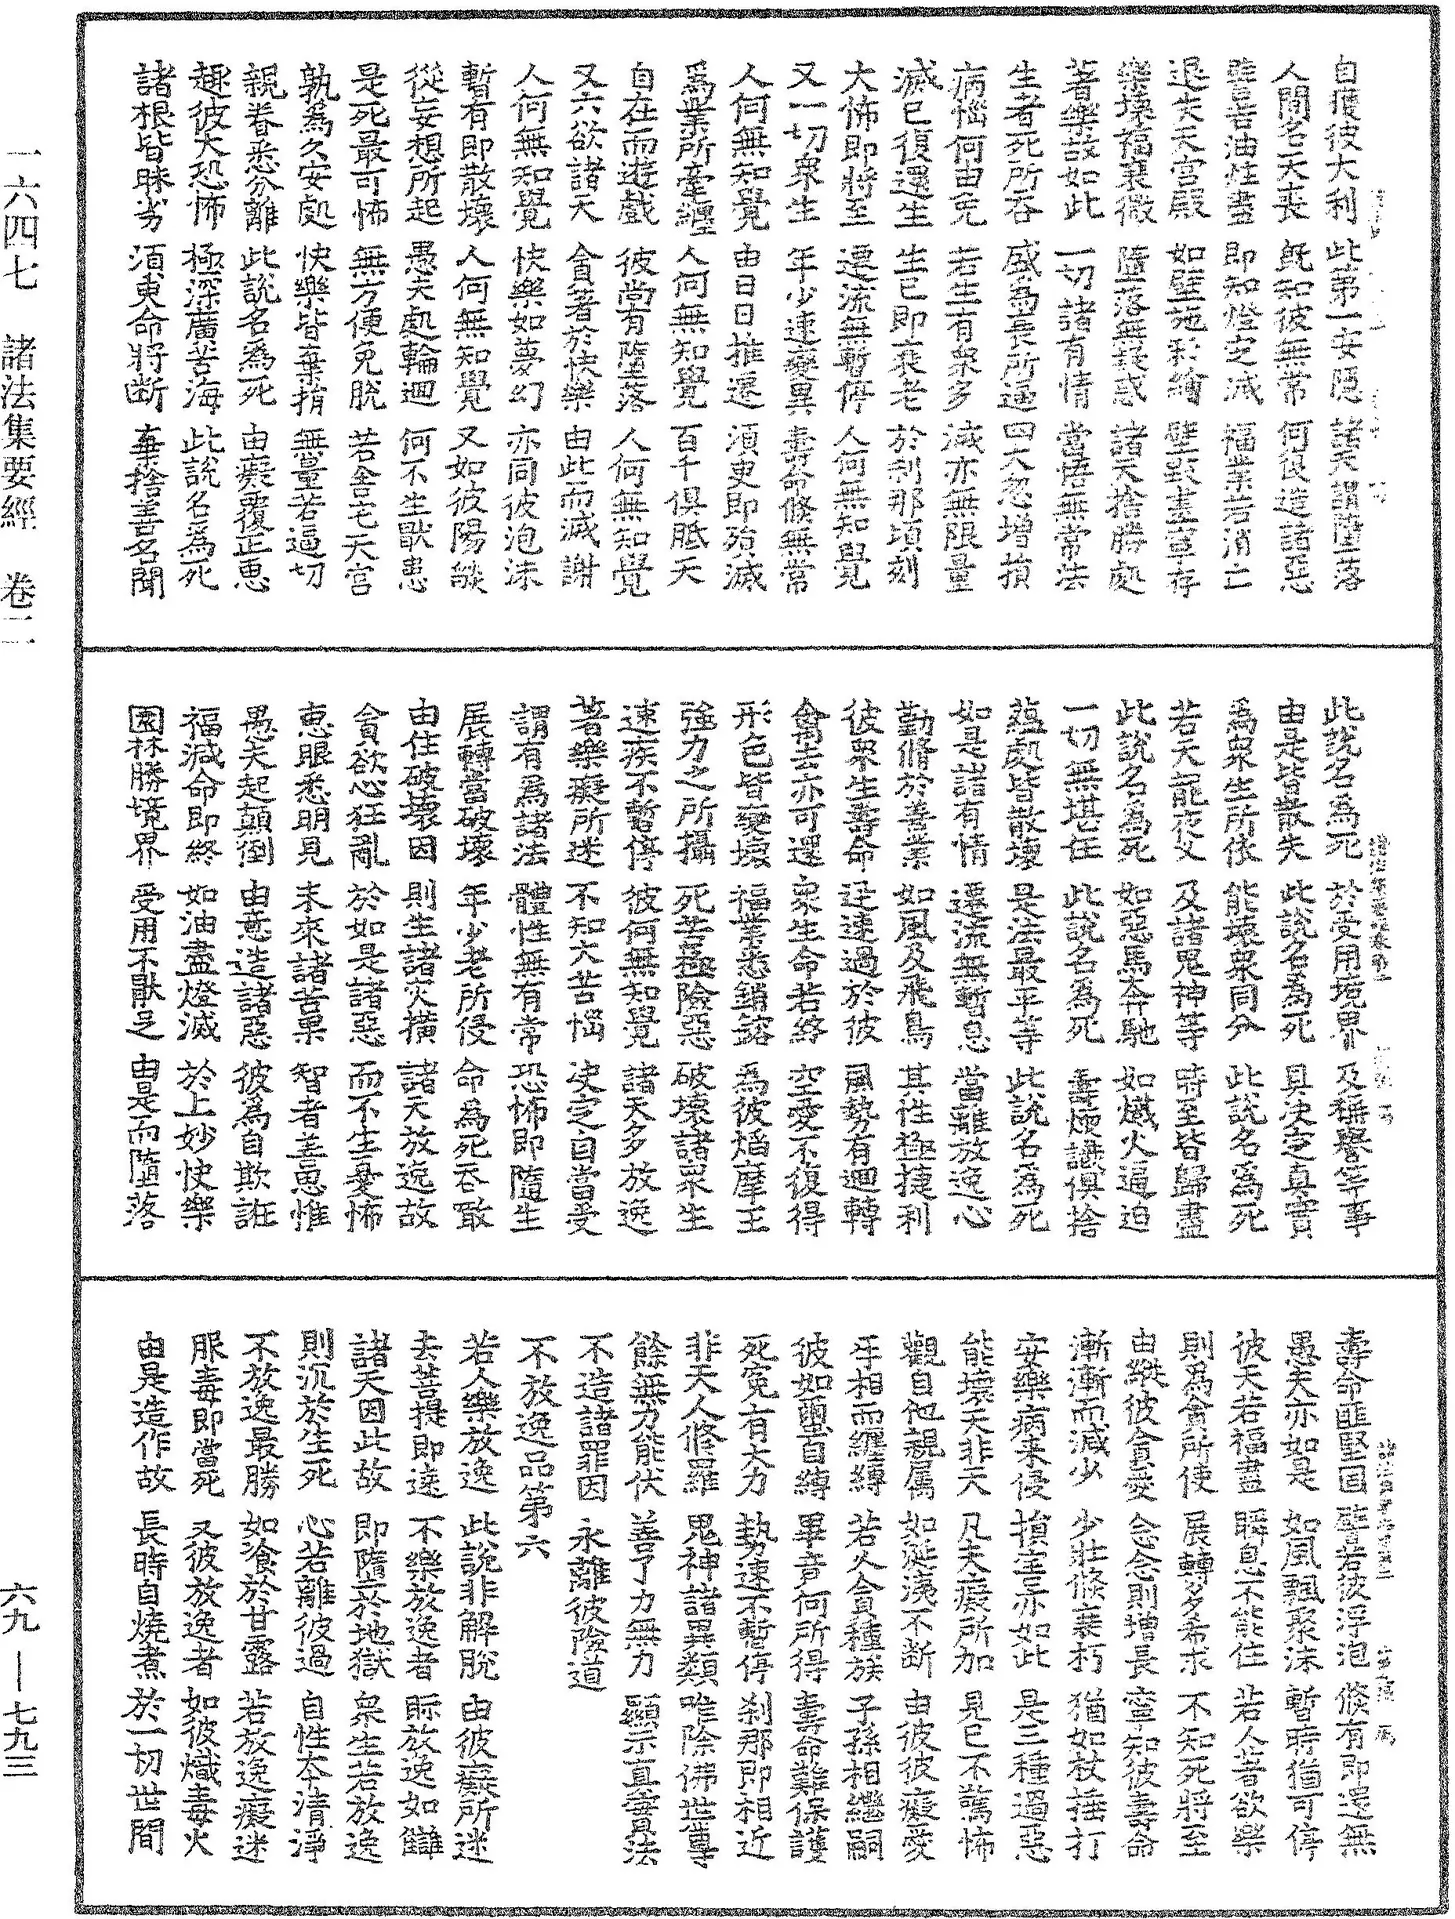 自獲彼大利 此第一安隱 諸天謂墮落
人間名天喪 既知彼無常 何復造諸惡
譬若油炷盡 即知燈定滅 福業若消亡
退失天宮殿 如壁施彩繪 壁毀畫寧存
樂壞福衰微 墮落無疑惑 諸天捨勝處
著樂故如此 一切諸有情 當悟無常法
生者死所吞 盛為長所逼 四大忽增損
病惱何由免 若生有眾多 滅亦無限量
滅已復還生 生已即衰老 於刹那頃刻
大怖即將至 遷流無暫停 人何無知覺
又一切眾生 年少速變異 壽命倏無常
人何無知覺 由日日推遷 須臾即殞滅
為業所牽纏 人何無知覺 百千俱胝天
自在而遊戲 彼尚有墮落 人何無知覺
又六欲諸天 貪著於快樂 由此而滅謝
人何無知覺 快樂如夢幻 亦同彼泡沫
暫有即散壞 人何無知覺 又如彼陽燄
從妄想所起 愚夫處輪迴 何不生厭患
是死最可怖 無方便免脫 若舍宅天宮
孰為久安處 快樂皆棄捐 無量若逼切
親眷悉分離 此說名為死 由癡覆正恵
趣彼大恐怖 極深廣苦海 此說名為死
諸根皆昧劣 須臾命將斷 棄捨善名聞
此說名為死 於受用境界 及稱譽等事
由是皆散失 此說名為死 具決定真實
為眾生所依 能壞眾同分 此說名為死
若天龍夜叉 及諸鬼神等 時至皆歸盡
此說名為死 如惡馬奔馳 如熾火逼迫
一切無堪任 此說名為死 壽煗識俱捨
蘊處皆散壞 是法最平等 此說名為死
如是諸有情 遷流無暫息 當離放逸心
勤修於善業 如風及飛鳥 其性極捷利
彼眾生壽命 迅速過於彼 風勢有迴轉
禽去亦可還 眾生命若終 空愛不復得
形色皆變壞 福業悉銷鎔 為彼焰摩王
強力之所攝 死苦極險惡 破壞諸眾生
速疾不暫停 彼何無知覺 諸天多放逸
著樂癡所迷 不知大苦惱 決定自當受
謂有為諸法 體性無有常 恐怖即隨生
展轉當破壞 年少老所侵 命為死吞噉
由住破壞因 則生諸灾橫 諸天放逸故
貪欲心狂亂 於如是諸惡 而不生憂怖
恵眼悉明見 未來諸苦果 智者善思惟
愚夫起顛倒 由意造諸惡 彼為自欺誑
福減命即終 如油盡燈滅 於上妙快樂
園林勝境界 受用不厭足 由是而墮落
壽命匪堅固 譬若彼浮泡 倏有即還無
愚夫亦如是 如風飄聚沫 暫時猶可停
彼天若福盡 瞬息不能住 若人著欲樂
則為貪所使 展轉多希求 不知死將至
由縱彼貪愛 念念則增長 寧知彼壽命
漸漸而減少 少壯倏衰朽 猶如杖捶打
安樂病来侵 損害亦如此 是三種過惡
能壞天非天 凡夫癡所加 見已不驚怖
觀自他親属 如涎洟不断 由彼彼癡愛
牙相而纏縛 若人貪種族 子孫相繼嗣
彼如蠒自縛 畢竟何所得 壽命難保護
死冤有大力 勢速不暫停 刹那即相近
非天人修羅 鬼神諸異類 唯除佛世尊
餘無力能伏 善了力無力 顯示真實法
不造諸罪因 永離彼險道
不放逸品第六
若人樂放逸 此說非解脫 由彼癡所迷
去菩提即遠 不樂放逸者 眎放逸如讎
諸天因此故 即墮於地獄 眾生若放逸
則沉於生死 心若離彼過 自性本清淨
不放逸最勝 如飡於甘露 若放逸癡迷
服毒即當死 又彼放逸者 如彼熾毒火
由是造作故 長時自燒煮 於一切世間
一六四七 諸法集要經 卷二
六九—七九三